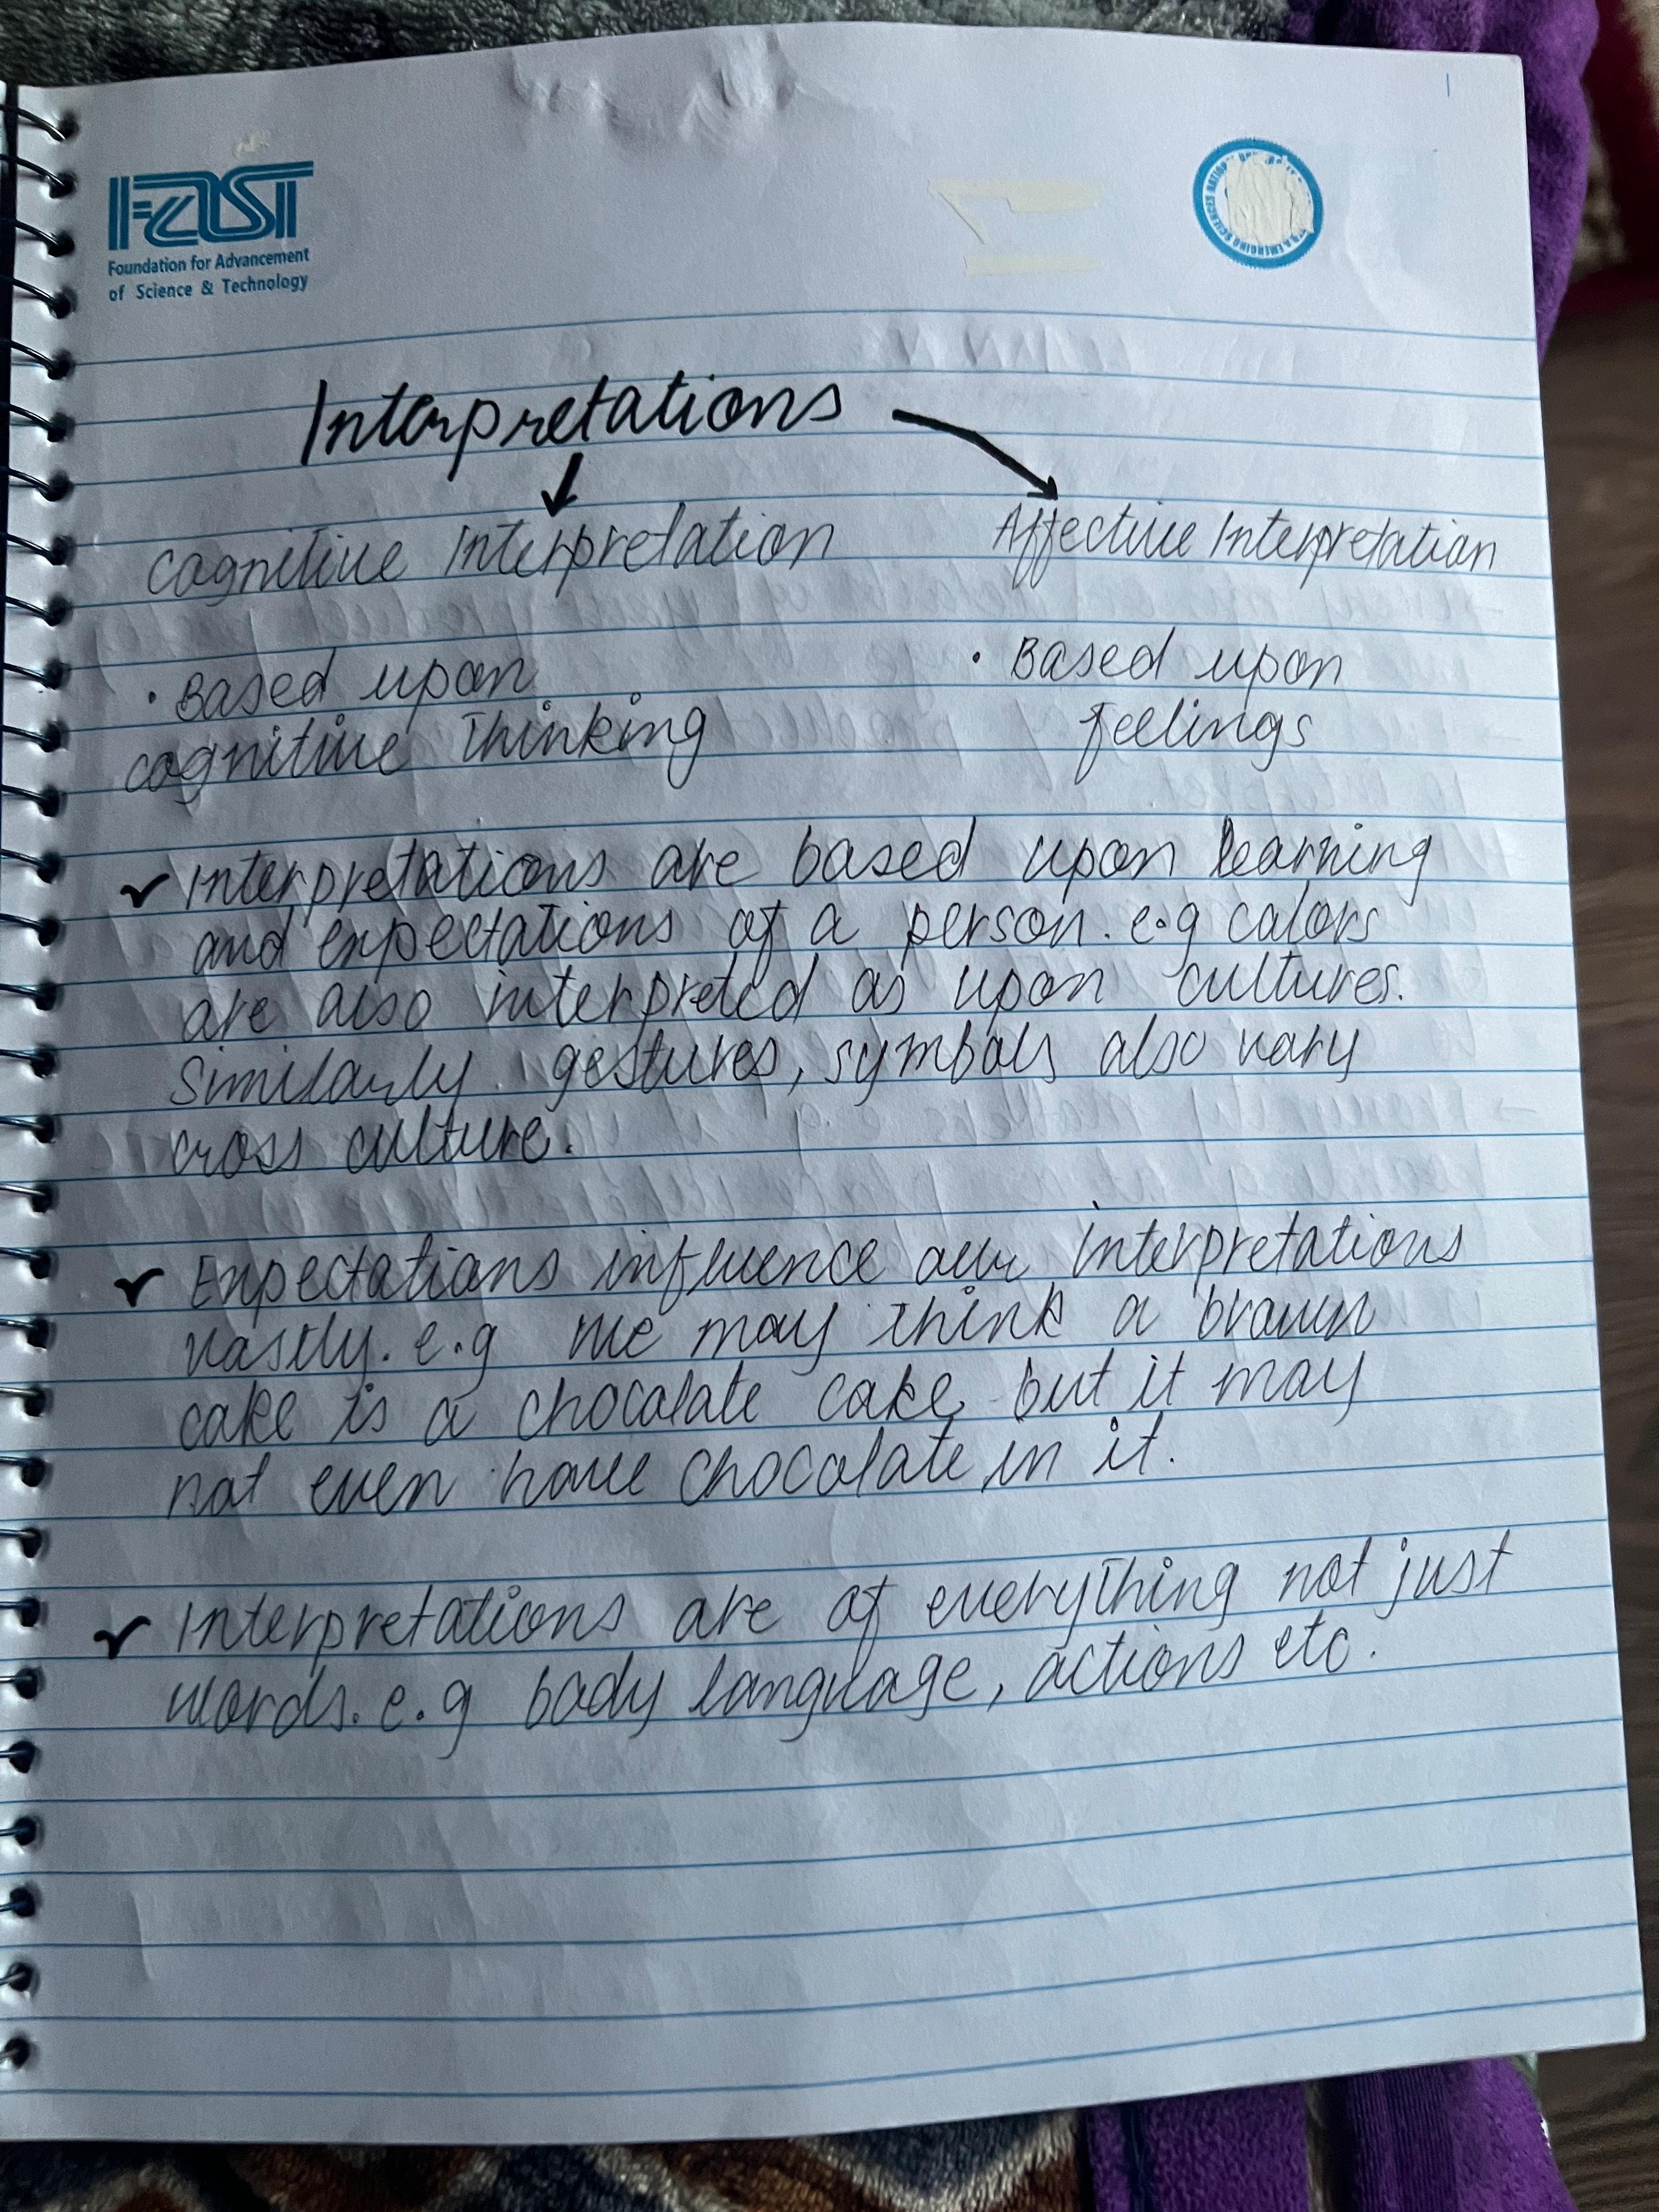 FAST
Foundation for Advancement
of Science & Technology
Interpretations
Cognitive Interpretation
Affective Interpretation
• Based upon
cognitive thinking
• Based upon
feelings
✓ Interpretations are based upon learning
and expectations of a person. e.g colors
are also interpreted as upon cultures.
Similarly gestures, symbols also vary
cross culture.
✓ Expectations influence our interpretations
vastly. e.g we may think a brown
cake is a chocolate cake but it may
not even have chocolate in it.
✓ Interpretations are of everything not just
words. e.g body language, actions etc.